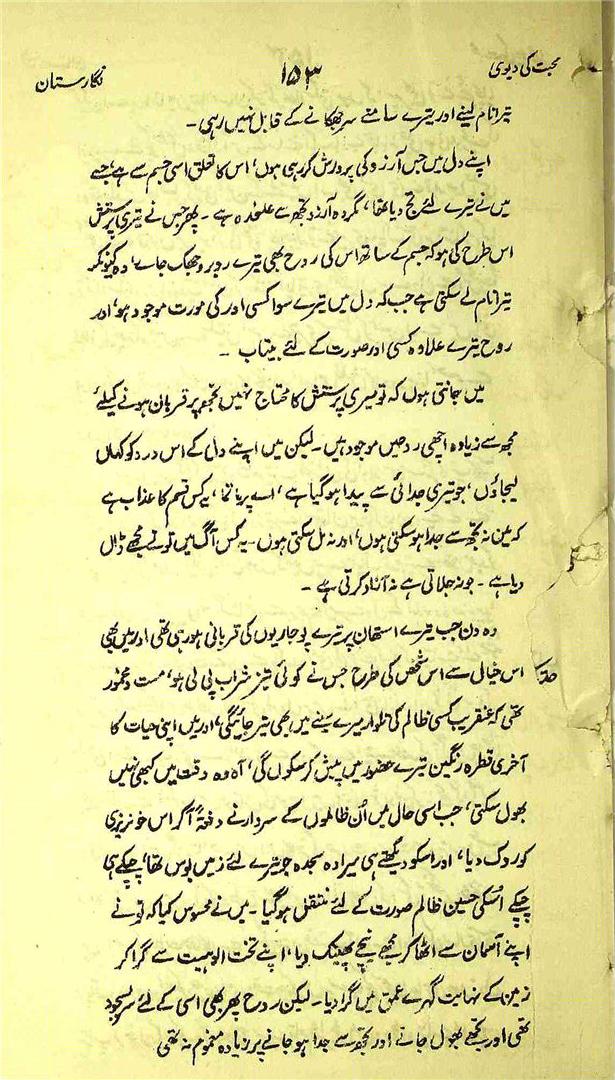 محبت کی دیوی ۱۵۳ نگارستان
تیرا نام لینے اور تیرے سامنے سر جھکانے کے قابل نہیں رہی ۔
اپنے دل میں جس آرزو کی پرورش کر رہی ہوں، اس کا تعلق اسی جسم سے ہے، جسے
میں نے تیرے لئے تج دیا تھا، مگر وہ آرزو تجھ سے علیٰحدہ ہے ۔ پھر جس نے تیری پرستش
اس طرح کی ہو کہ جسم کے ساتھ اس کی روح بھی تیرے روبرو جھک جائے، وہ کیونکر
تیرا نام لے سکتی ہے جب کہ دل میں تیرے سوا کسی اور کی مورت موجود ہو، اور
روح تیرے علاوہ کسی اور صورت کے لئے بیتاب ۔
میں جانتی ہوں کہ تو میری پرستش کا محتاج نہیں تجھ پر قربان ہونے کیلئے
مجھ سے زیادہ اچھی روحیں موجود ہیں ۔ لیکن میں اپنے دل کے اس درد کو کہاں
لیجاؤں، جو تیری جدائی سے پیدا ہو گیا ہے، اے پرماتما، یہ کس قسم کا عذاب ہے
کہ مین نہ تجھ سے جدا ہو سکتی ہوں، اور نہ مل سکتی ہوں ۔ یہ کس آگ میں تو نے مجھے ڈال
دیا ہے ۔ جو نہ جلاتی ہے نہ آزاد کرتی ہے ۔
وہ دن جب تیرے استھان پر تیرے پوجاریوں کی قربانی ہو رہی تھی اور میں بھی
اس خیال سے اس شخص کی طرح جس نے کوئی تیز شراب پی لی ہو، مست و مخمور
تھی کہ عنقریب کسی ظالم کی تلوار میرے سینے میں بھی تیر جائیگی، اور میں اپنی حیات کا
آخری قطرہ رنگین تیرے حضور میں پیش کر سکوں گی، آہ وہ وقت میں کبھی نہیں
بھول سکتی، جب اسی حال میں اُن ظالموں کے سردار نے دفعۃً آکر اس خونریزی
کو روک دیا، اور اسکو دیکھتے ہی میرا وہ سجدہ جو تیرے لئے زمیں بوس تھا، چپکے ہی
چپکے اسکی حسین ظالم صورت کے لئے منتقل ہو گیا ۔ میں نے محسوس کیا کہ تو نے
اپنے آسمان سے اٹھا کر مجھے نیچے پھینک دیا، اپنے تخت الوہیت سے گرا کر
زمین کے نہایت گہرے عمق میں گرا دیا ۔ لیکن روح پھر بھی اسی کے لئے سر بسجود
تھی اور تجھے بھول جانے اور تجھ سے جدا ہو جانے پر زیادہ مغموم نہ تھی